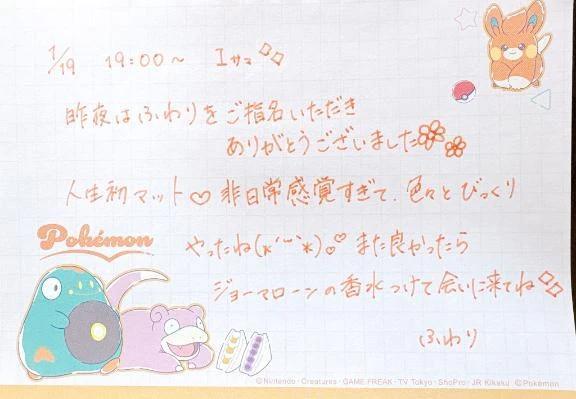 1/19 19:00〜 Iサマ
昨夜はふわりをご指名いただき
ありがとうございました
人生初マット♡非日常感覚すぎて、色々とびっくり
Pokémon
やったね(*´˘`*)。♡また良かったら
ジョーマローンの香水つけて会いに来てね
ふわり
©Nintendo・Creatures・GAME FREAK・TV Tokyo・ShoPro・JR Kikaku ©Pokémon